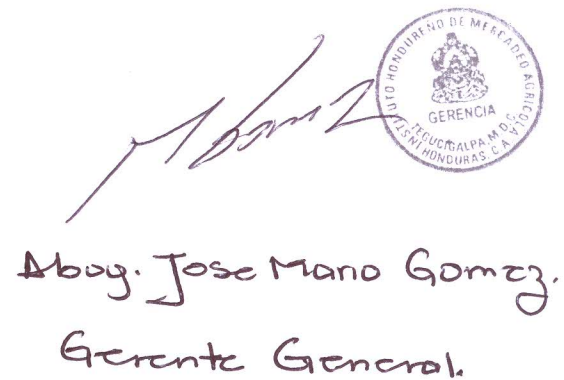 INSTITUTO HONDUREÑO DE MERCADEO AGRICOLA
GERENCIA
TEGUCIGALPA, M.D.C.
HONDURAS, C.A.
Abog. Jose Mario Gomez.
Gerente General.